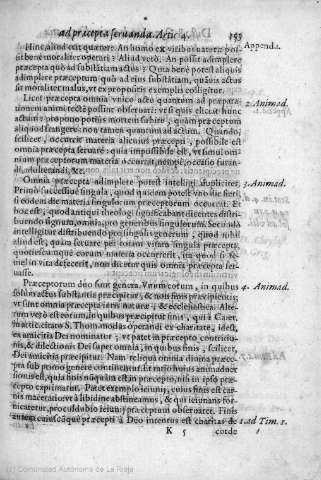 ad præcepta seruanda. Artic 4. 153
Hinc aliud est quærere. An homo ex viribus naturæ possit
bene moraliter operari: Aliud verò. An possit adimplere
præcepta quo ad substātiam actus: Quia bene potest aliquis
adimplere præceptum quò ad eius substātiam, quāuis actus
sit moraliter malus, vt ex propositis exemplis colligitur.
Appenda.
Licet præcepta omnia vnico actu quantum ad præparationem
animi rectè possint obseruari: vt si quis eliceret hunc
actum: propono potius mortem subire, quàm præceptum
aliquod frangere: non tamen quantum ad actum. Quando,
scilicet, occurrit materia alicuius præcepti, possibile est
omnia præcepta seruare: quia impossibile est, vt simul omnium
præceptorum materia occurrat, nempè, occasio furandi,
adulterandi, &c.
2. Animad.
Omnia præcepta adimplere potest intelligi dupliciter.
Primò successiuè singula, quod quidem potest
si eodem die materia singulorum præceptorum occurrat. Et
hoc est, quod antiqui theologi significabant dicentes distribuendo
signum, omnia, pro generibus singulorum. Secundò
intelligitur distribuendo pro singulis generum; quod nihil
aliud est; quàm seruare per totam vitam singula præcepta,
quotiescunque eorum materia occurrerit, ita quod si semel
in vita defecerit, non dicetur quis omnia præcepta seruasse.
3. Animad.
Præceptorum duo sunt genera. Vnum eorum, in quibus
solùm actus substantia præcipitur, & non finis præcipientis;
vt sunt omnia præcepta iuris naturæ, & ecclesiastica. Alterum
verò est eorum, in quibus præcipitur finis, qui à Caiet.
in artic. citato S. Thom. modus operandi ex charitate, idest,
ex amicitia Dei nominatur; vt patet in præcepto contritionis,
& dilectionis Dei super omnia, in quibus finis, scilicet,
Dei amicitia præcipitur. Nam reliqua omnia diuina præcepta
sub primo genere continentur. Et ratio huius animaduersionis
est, quia finis nūquam est in præcepto, nisi in ipso præcepto
exprimatur. Patet exemplo ieiunij, cuius finis est carnis
maceratio vt à libidine abstineamus, & qui ieiunans fornicaretur,
proculdubio ieiunij præceptum obseruaret. Finis
tamen cuiuscūque præcepti à Deo intentus est charitas de
4. Animad.
1. ad Tim. 1.
K 5 corde
(c) Comunidad Autónoma de La Rioja